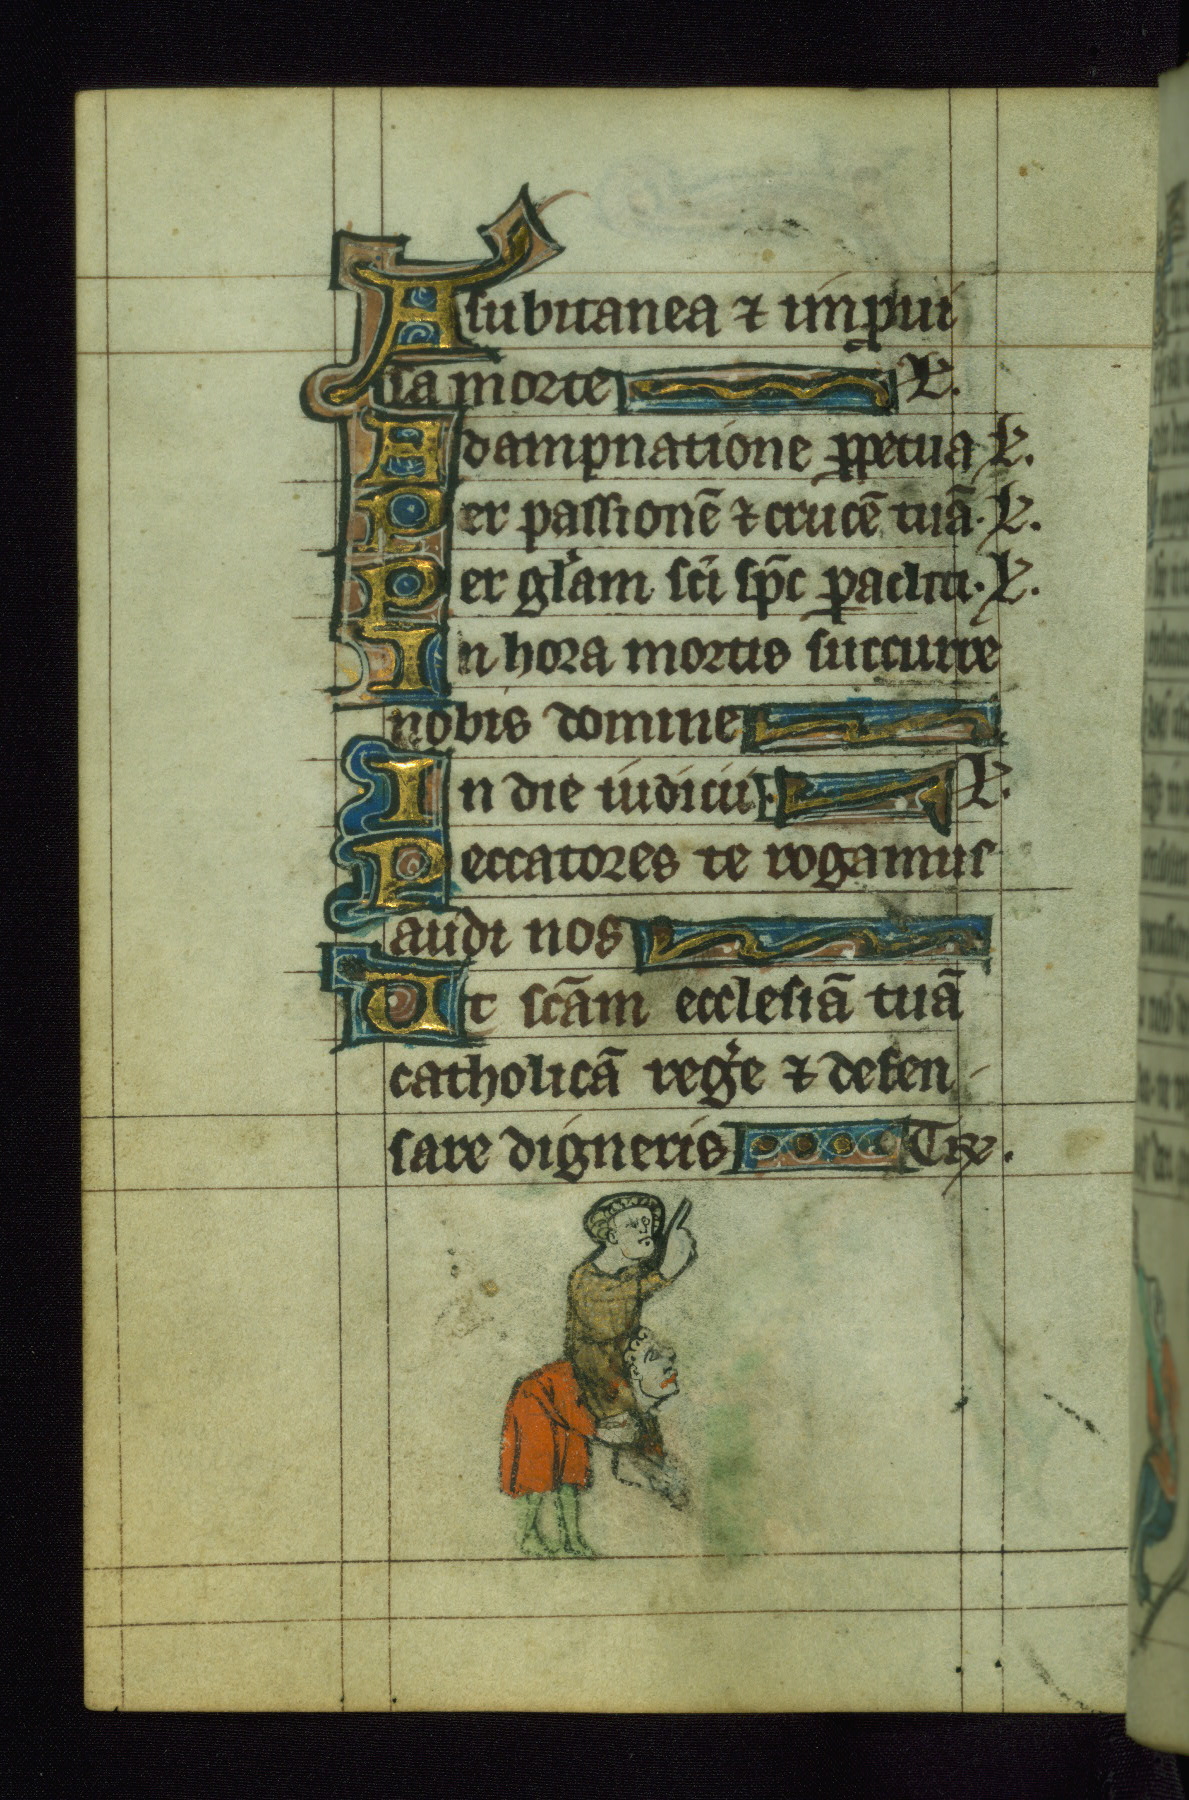 A subitanea ⁊ imp̱ui
sa morte L̸.
A dampnatione ꝑpetua L̸.
Per passionē ⁊ crucē tuā. L̸.
Per gl̃am sci sp̄c paclitī. L̸.
In hora mortis succurre
nobis domine
In die iudicii. L̸.
Peccatores te rogamus
audi nos
Ut scām ecclesiā tuā
catholicā regẽ ⁊ defen
sare digneris Te r̸.